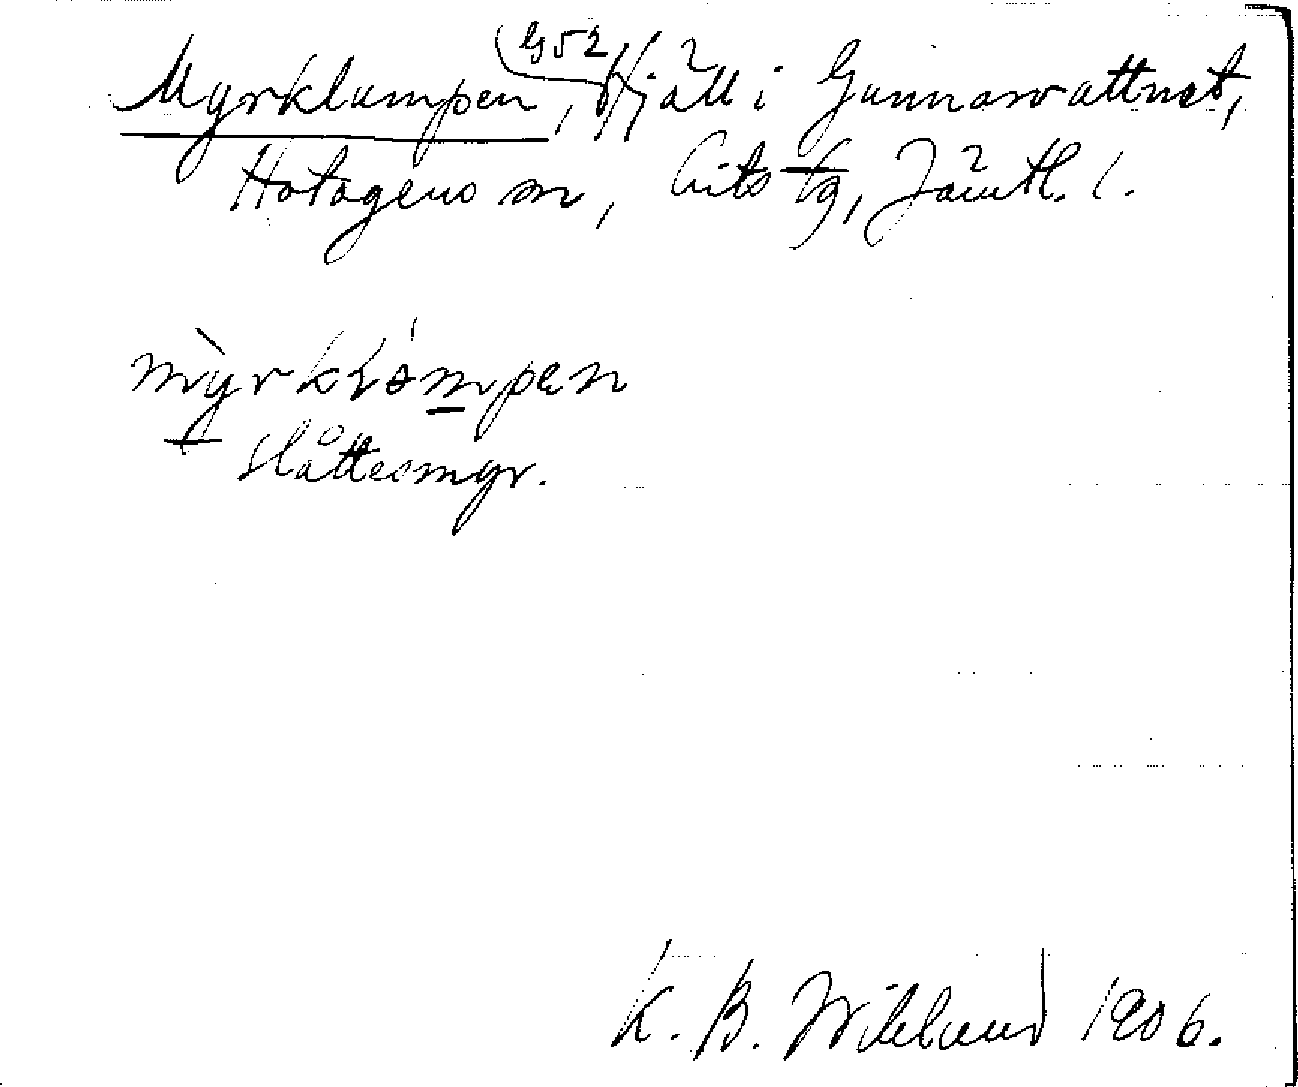 G52
Myrklumpen, fjäll i Gunnarvattnet,
Hotagens sn, Lits tg, Jämtl. l.
mỳrklómpen
Slåttesmyr.
K. B. Wiklund 1906.